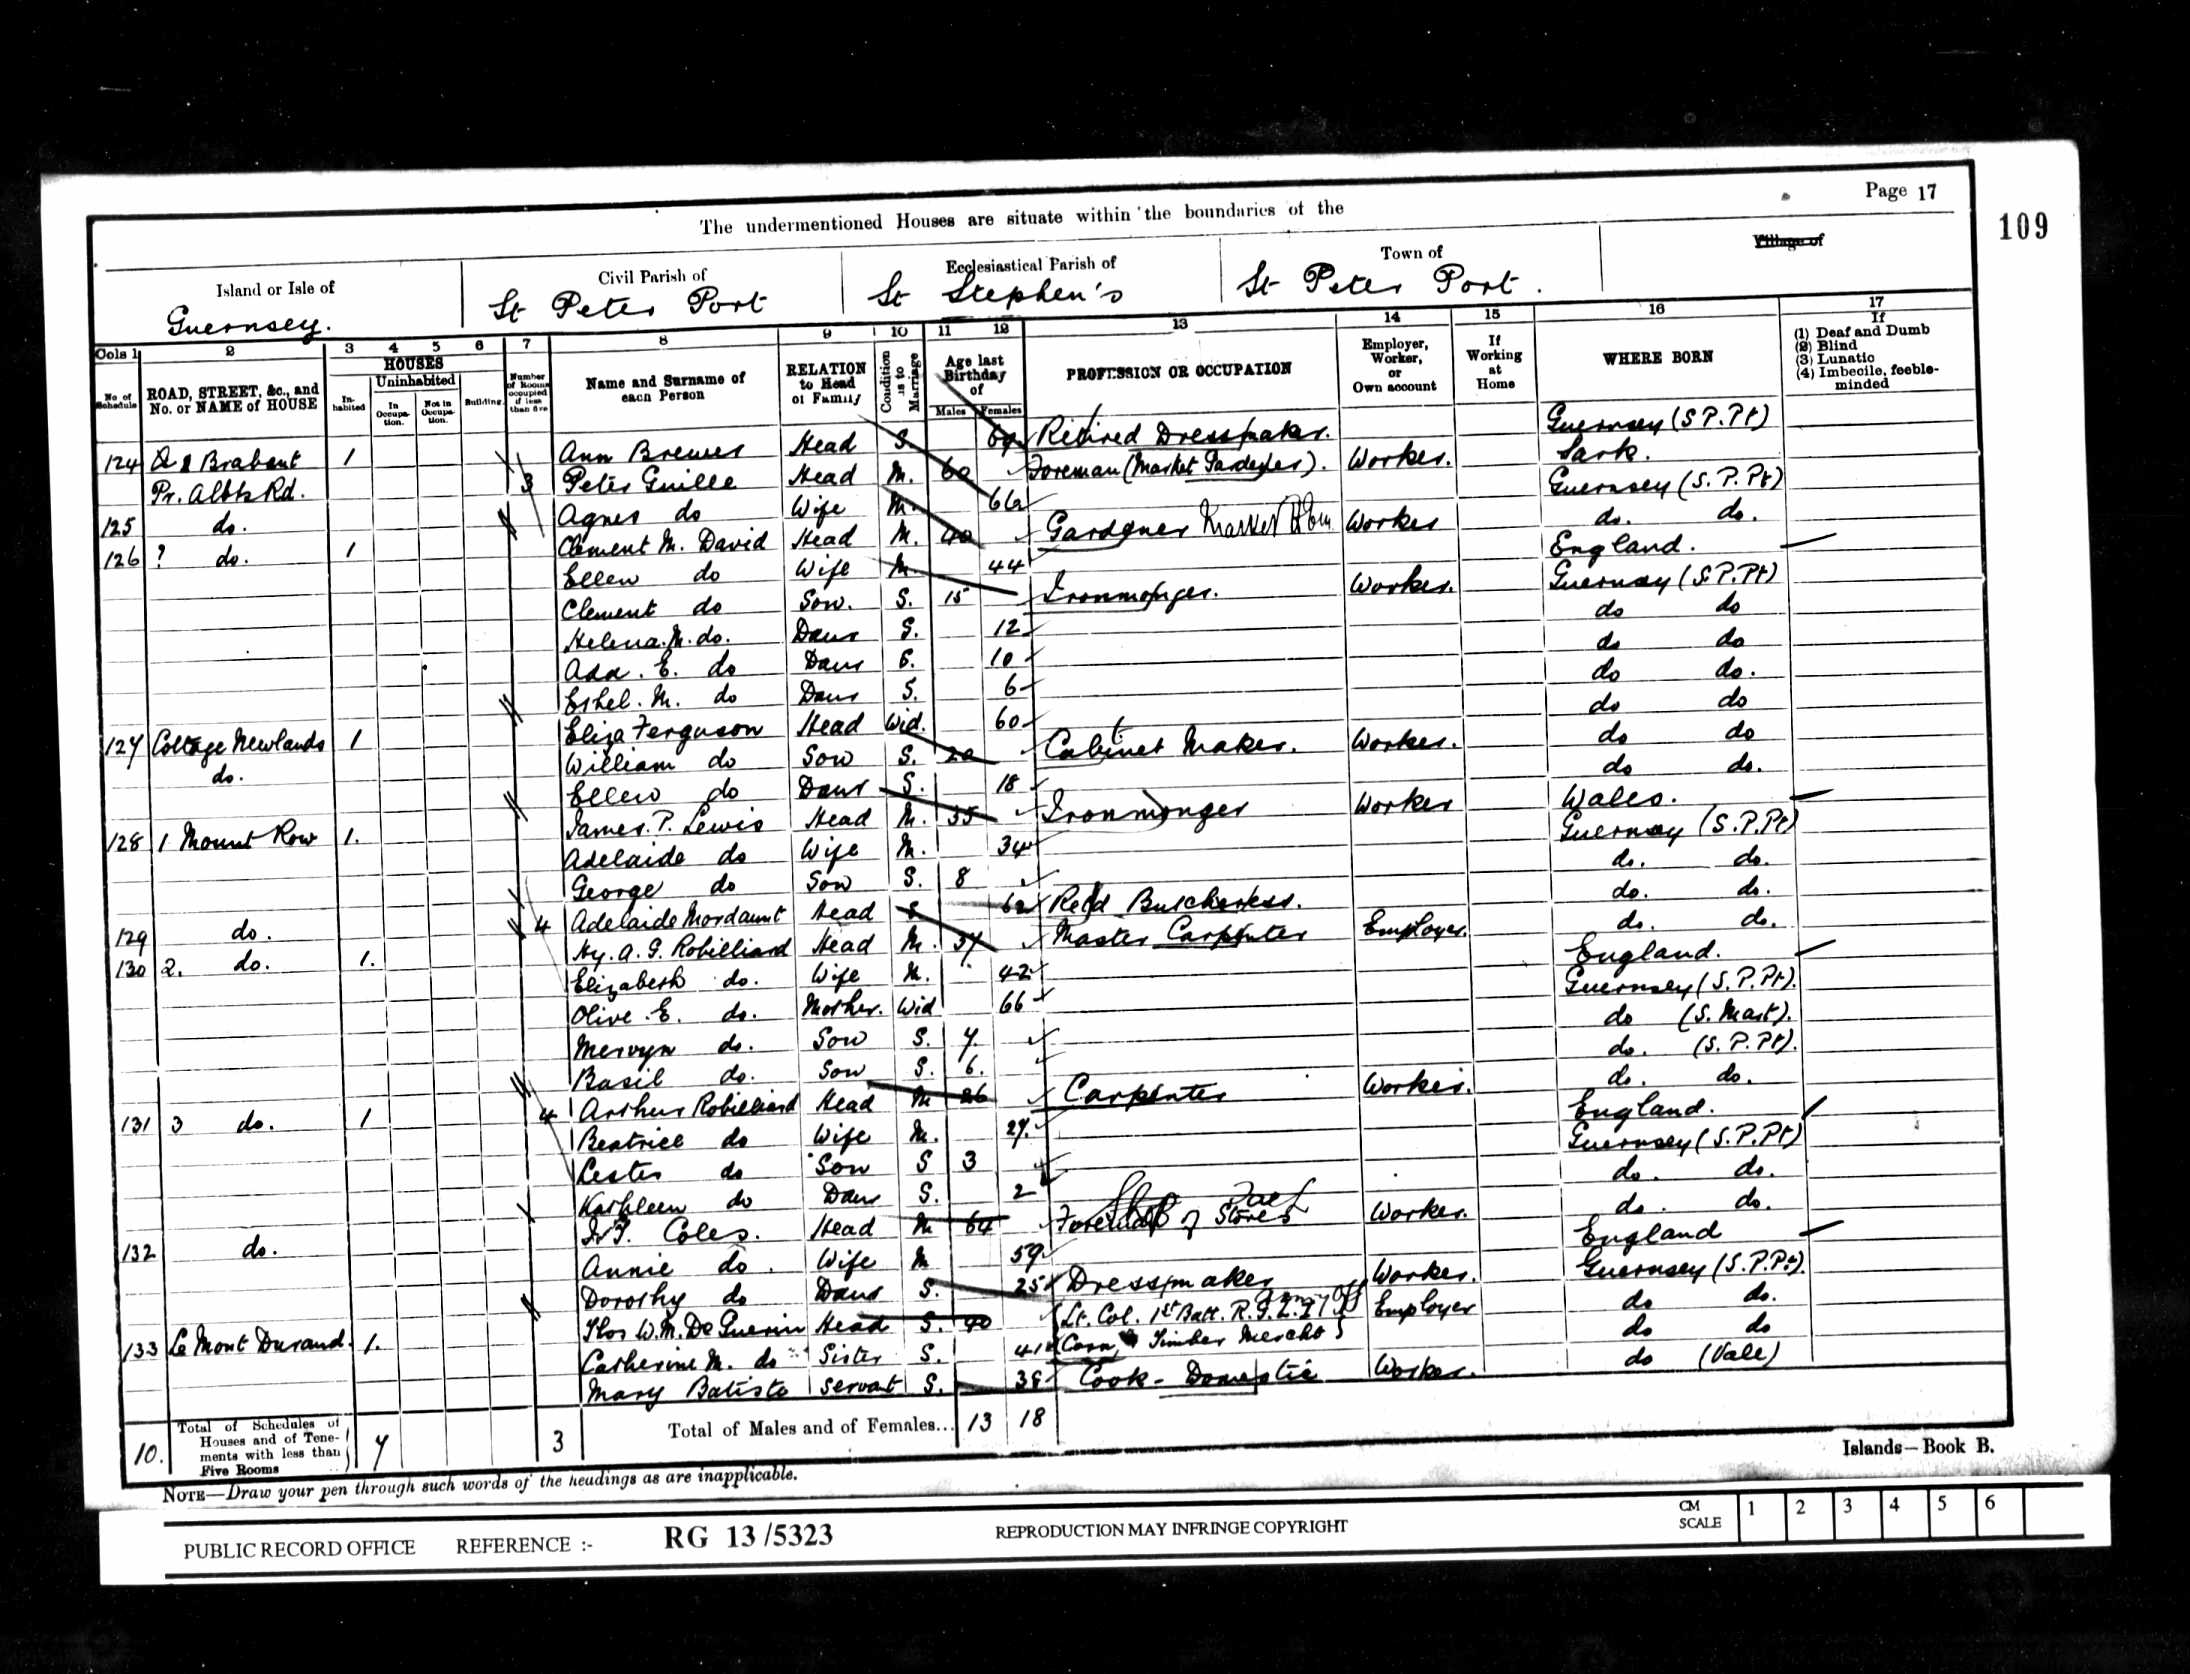 Page 17
109
The undermentioned Houses are situate within the boundaries of the
Island or Isle of Guernsey.
Civil Parish of St Peter Port
Ecclesiastical Parish of St Stephen's
Town of St Peter Port.
Village of
Cols 1 2 3 4 5 6 7 8 9 10 11 12 13 14 15 16 17
No. of Schedule
ROAD, STREET, &c., and No. or NAME of HOUSE
HOUSES
Inhabited
Uninhabited
In Occupation.
Not in Occupation.
Building.
Number of Rooms occupied if less than five
Name and Surname of each Person
RELATION to Head of Family
Condition as to Marriage
Age last Birthday of
Males Females
PROFESSION OR OCCUPATION
Employer, Worker, or Own account
If Working at Home
WHERE BORN
If
(1) Deaf and Dumb
(2) Blind
(3) Lunatic
(4) Imbecile, feeble-minded
124 Brabant 1 Ann Brewer Head S. 69 Retired Dressmaker. Guernsey (S P. Pt)
Pr. Albts Rd. 3 Peter Guille Head M. 60 Foreman (Market Gardener). Worker. Sark.
125 do. Agnes do Wife M. 66 Guernsey (S. P. Pt)
126 ? do. 1 Clement M. David Head M. 40 Gardener Market Worker do. do.
Ellen do Wife M. 44 England.
Clement do Son. S. 15 Ironmonger. Worker. Guernsey (S P. Pt)
Helena. M. do. Daur S. 12 do do
Ada. E. do Daur S. 10 do do
Ethel. M. do Daur S. 6 do do.
127 Cottage Newlands 1 Eliza Ferguson Head Wid. 60 do do
do. William do Son S. 20 Cabinet Maker. Worker. do do
Ellen do Daur S. 18 do do.
128 1 Mount Row 1. James. P. Lewis Head M. 35 Ironmonger Worker Wales.
Adelaide do Wife M. 34 Guernsey (S. P. Pt)
George do Son S. 8 do. do.
129 do. 4 Adelaide Mordaunt Head S 62 Retd Butcheress. do. do.
130 2. do. 1. Hy. A. G. Robilliard Head M. 37 Master Carpenter Employer. do. do.
Elizabeth do. Wife M. 42 England.
Olive. E. do. Mother. Wid 66 Guernsey (S. P. Pt).
Mervyn do. Son S. 7. do (S. Mart).
Basil do. Son S. 6. do. (S. P. Pt).
131 3 do. 1 4 Arthur Robilliard Head M 26 Carpenter Worker. do. do.
Beatrice do Wife M. 27. England.
Lester do Son S 3 Guernsey (S. P. Pt)
Kathleen do Daur S. 2 do. do.
132 do. Coles. Head M 64 Foreman of Stores Worker. do. do.
Annie do. Wife M 59 England
Dorothy do Daur S. 25 Dressmaker Worker. Guernsey (S. P. Pt).
133 Le Mont Durand. 1. Thos W. M. De Guerin Head S. 40 Lt. Col. 1st Batt. R. G. L. I Employer do do.
Catherine M. do Sister S. 41 Corn & Timber Mercht do do
Mary Batiste Servant S. 38 Cook - Domestic Worker. do (Vale)
10. Total of Schedules of Houses and of Tenements with less than Five Rooms 7 3 Total of Males and of Females... 13 18
Islands—Book B.
NOTE—Draw your pen through such words of the headings as are inapplicable.
PUBLIC RECORD OFFICE REFERENCE :- RG 13/5323 REPRODUCTION MAY INFRINGE COPYRIGHT CM SCALE 1 2 3 4 5 6